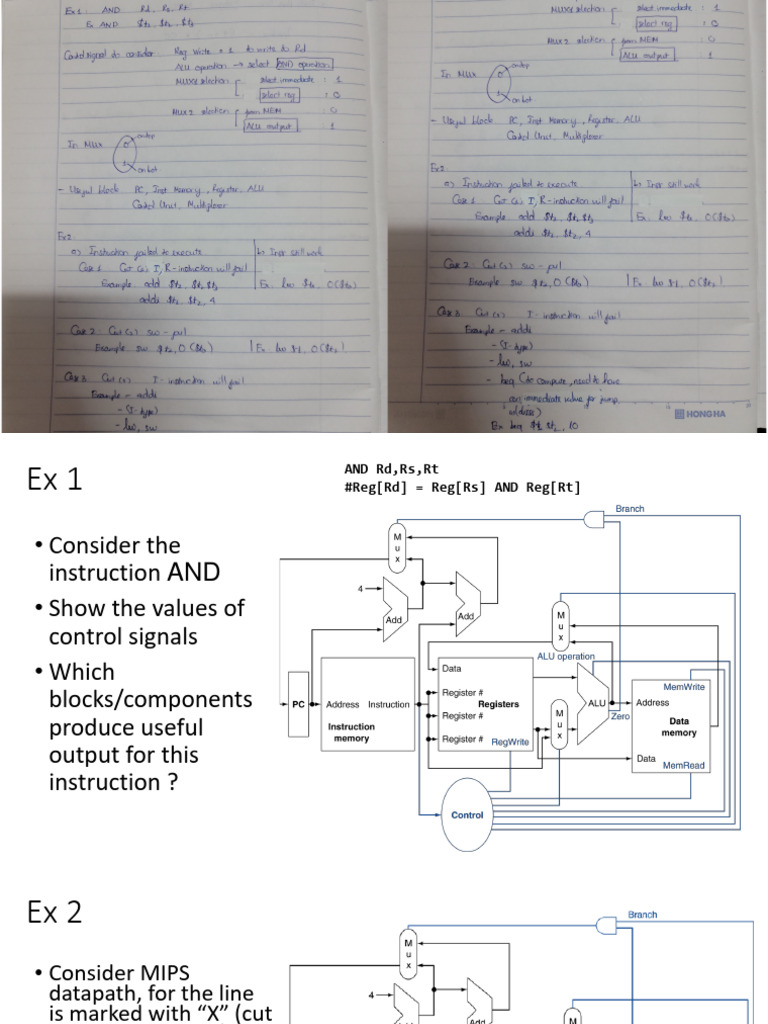 Ex 1 : AND Rd, Rs, Rt
Ex AND $t1, $t2, $t3
Control signal do consider Reg Write = 1 to write to Rd
ALU operation → select AND operation
MUX selection select immediate : 1
select reg : 0
MUX 2 selection from MEM : 0
ALU output : 1
In Mux 0 → on top
1 → on bot
- Useful block PC, Inst Memory, Register, ALU
Control Unit, Multiplexer
Ex2
a) Instruction failed to execute
Inst still work
Case 1 Cut (1) I, R-instruction will fail
Example add
Ex. lw
Case 2 Cut (2) sw - fail
Example sw
Case 3 Cut (3) I - instruction will fail
Example - addi
- (I-type)
- lw, sw
select immediate : 1
select reg : 0
MUX 2 selection from MEM : 0
ALU output : 1
In Mux 0 → on top
1 → on bot
- Useful block PC, Inst Memory, Register, ALU
Control Unit, Multiplexer
a) Instruction failed to execute
Inst still work
Case 1 Cut (1) I, R-instruction will fail
Example add
Ex. lw
Case 2 Cut (2) sw - fail
Example sw
Case 3 Cut (3) I - instruction will fail
Example - addi
- (I-type)
- lw, sw
- beq (to compute, need to have
an immediate value for jump
address)
Ex beq $t1, $t2, 10
HONG HA
Ex 1
AND Rd,Rs,Rt
#Reg[Rd] = Reg[Rs] AND Reg[Rt]
• Consider the
instruction AND
• Show the values of
control signals
• Which
blocks/components
produce useful
output for this
instruction ?
Branch
M
u
x
4
Add
Add
M
u
x
ALU operation
Data
Register #
Registers
Register #
Register #
RegWrite
PC
Address Instruction
Instruction
memory
M
u
x
ALU
Zero
MemWrite
Address
Data
memory
Data
MemRead
Control
Ex 2
• Consider MIPS
datapath, for the line
is marked with “X” (cut
Branch
M
u
x
4
Add
Add
M